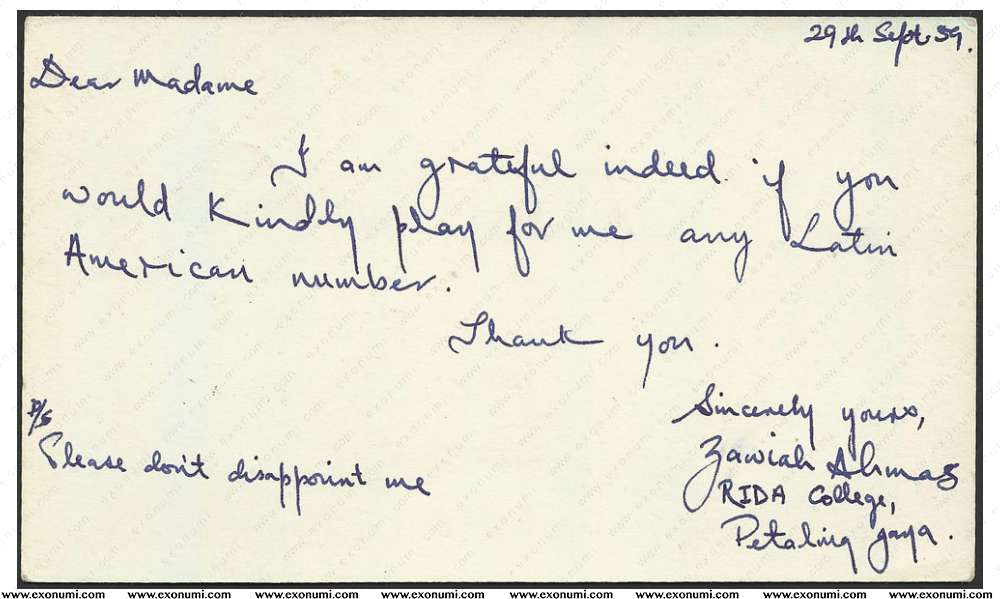 29th Sept 59.
Dear Madame
I am grateful indeed if you
would kindly play for me any Latin
American number.
Thank you.
Sincerely yours,
Zawiah Ahmad
RIDA College,
Petaling Jaya.
P/S
Please don't disappoint me
www.exonumi.com www.exonumi.com www.exonumi.com www.exonumi.com www.exonumi.com www.exonumi.com www.exonumi.com www.exonumi.com